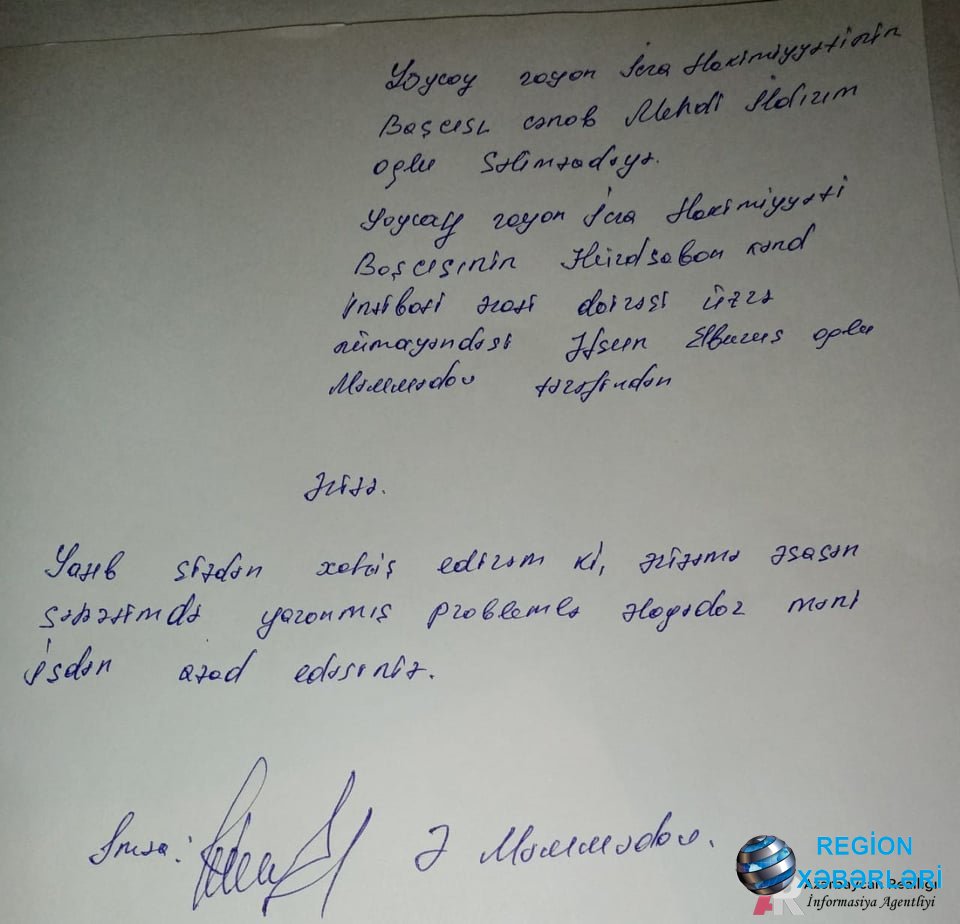 Göyçay rayon İcra Hakimiyyətinin
Başçısı cənab Mehdi İldırım
oğlu Səlimzadəyə.
Göyçay rayon İcra Hakimiyyəti
Başçısının Hürdsaban kənd
inzibati ərazi dairəsi üzrə
nümayəndəsi Əfsun Elburus oğlu
Məmmədov tərəfindən
Ərizə.
Yazıb sizdən xahiş edirəm ki, ərizəmə əsasən
səhhətimdə yaranmış problemlə əlaqədar məni
işdən azad edəsiniz.
İmza: Ə Məmmədov.
REGİON
XəBəRLəRİ
Azərbaycan Reallığı
İnformasiya Agentliyi